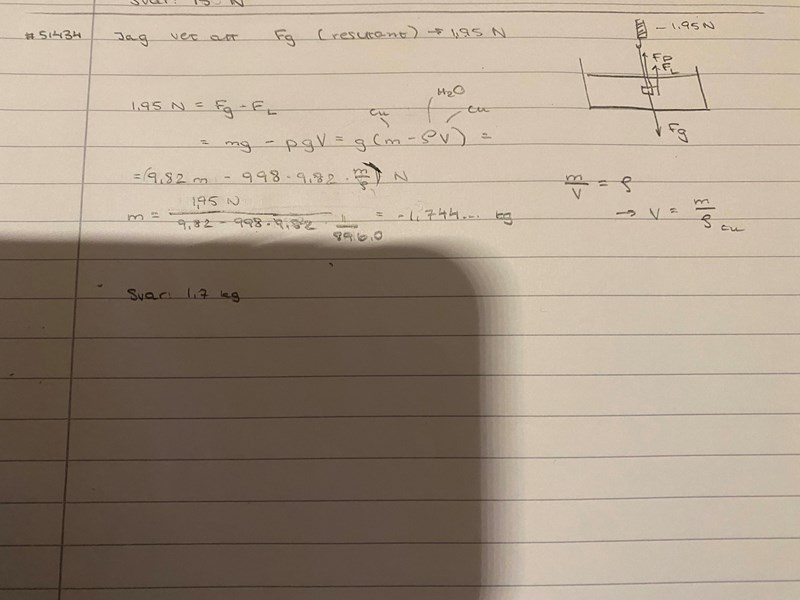 Svar: 15 N
#51434 Jag vet att Fg (resultant) → 1,95 N
- 1.95 N
FD
FL
Fg
1.95 N = Fg - FL
H2O
cu
cu
= mg - ρgV = g(m - ρV) =
=(9,82 m - 998 · 9,82 · m/ρ) N
m/V = ρ
m = 1,95 N / 9,82 - 998 · 9,82 1/8960 = -1,744... kg
→ V = m/ρ cu
Svar: 1,7 kg